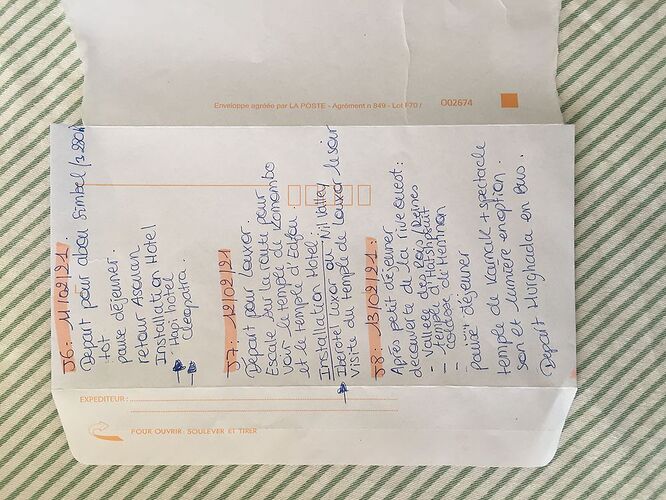 Enveloppe agréée par LA POSTE - Agrément n 849 - Lot F70 / 002674
J6: 11/02/21
Depart pour abou Simbel /3 280h
tot
pause déjeuner.
retour Assouan
Installation Hotel
Hapi hotel
Cleopatra.
J7: 12/02/21
Départ pour Louxor.
Escale sur la route pour
voir le temple de Komombo
et le temple d'Edfou.
Installation Hotel.
Iberotel Luxor ou Nil Valley
visite du temple de Louxor le soir
J8: 13/02/21:
Après petit déjeuner
découverte de la rive ouest:
- Vallée des Rois/Reines
- temple d'Hatshpsuit
- colosse de Memnon
pause déjeuner
temple de Karnak + spectacle
son et lumière en option.
Depart Hurghada en bus.
EXPEDITEUR:
POUR OUVRIR: SOULEVER ET TIRER